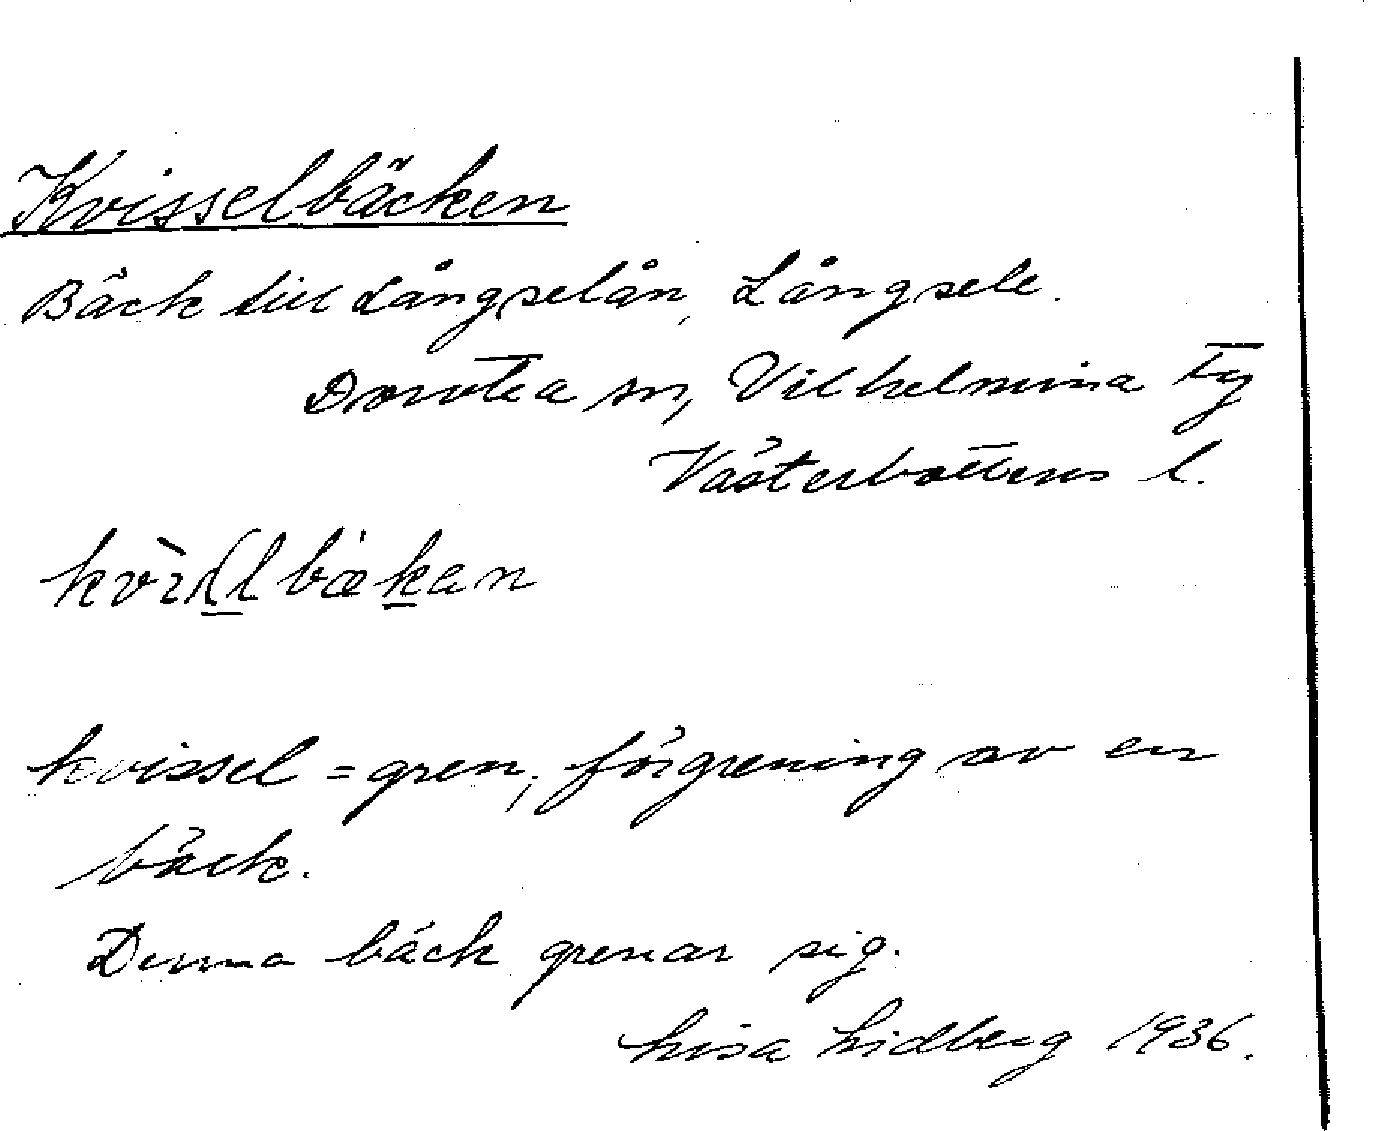 Kvisselbäcken
Bäck till Långselån, Långsele.
Dorotea sn, Vilhelmina Tg
Västerbottens l.
kvissel = gren, förgrening av en
bäck.
Denna bäck grenar sig.
Lisa Lidberg 1936.